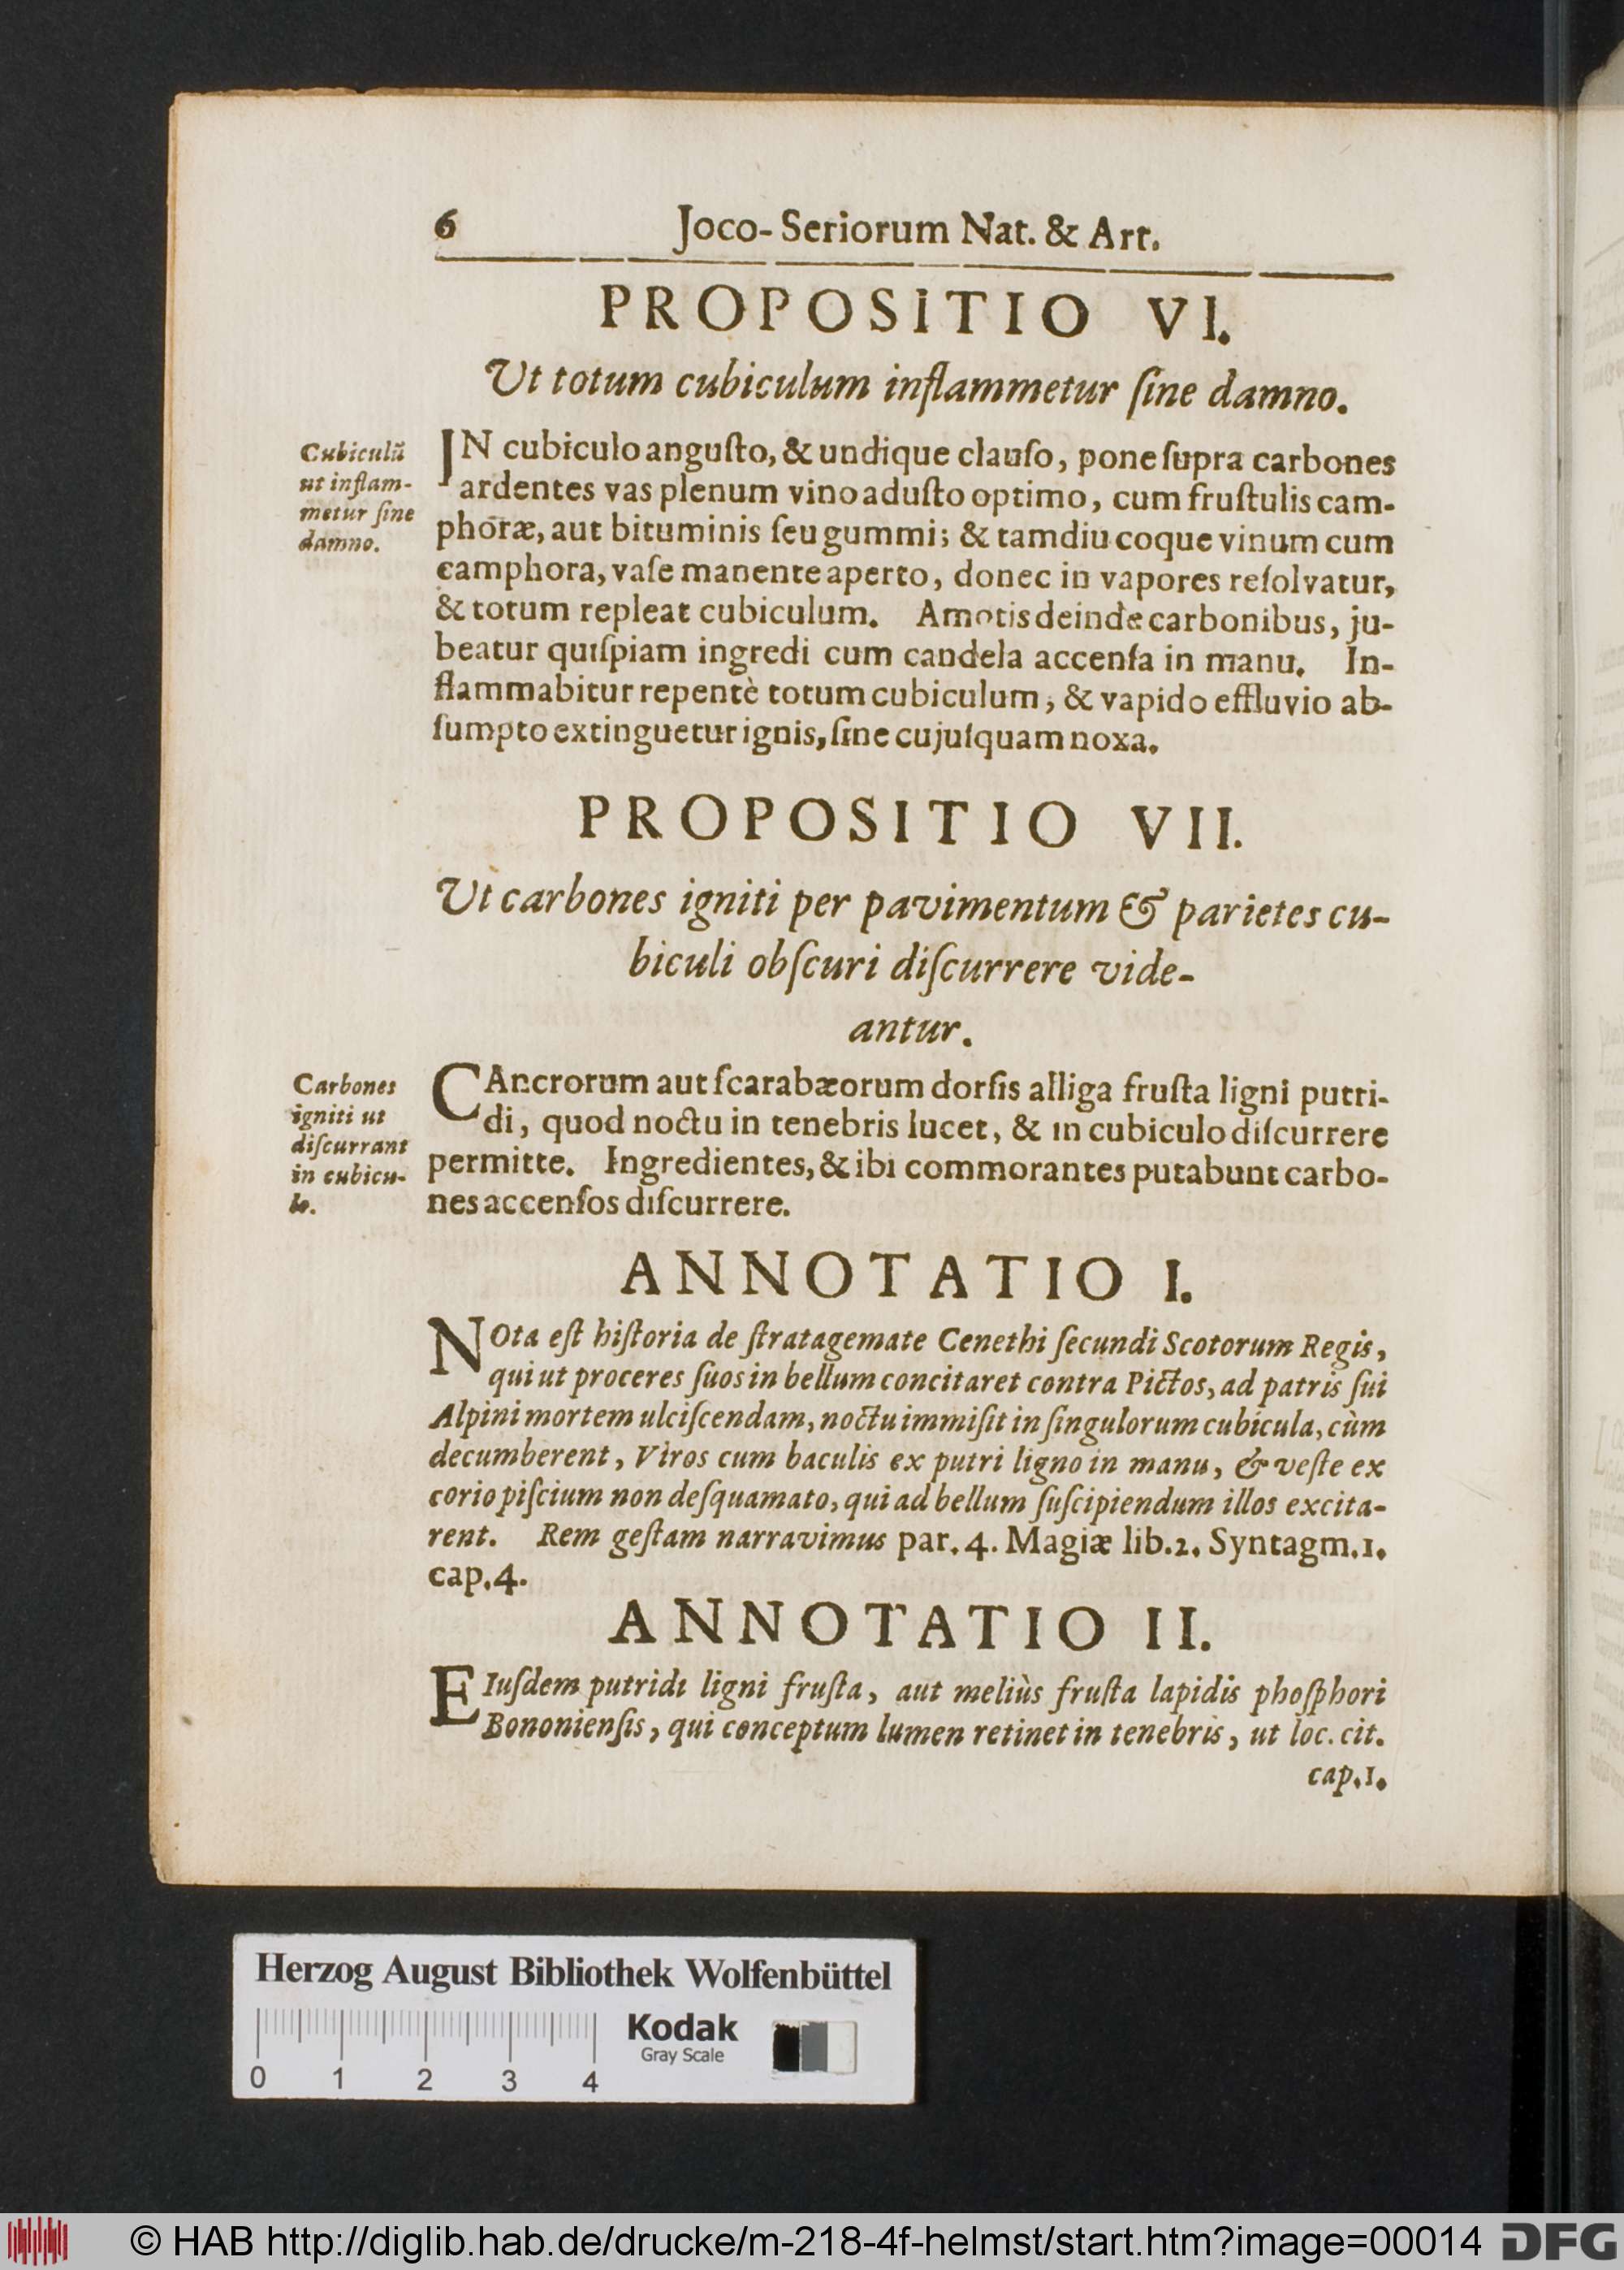 6 Joco-Seriorum Nat. & Art.
PROPOSITIO VI.
Ut totum cubiculum inflammetur ſine damno.
Cubiculũ
ut inflam-
metur ſine
damno.
IN cubiculo anguſto, & undique clauſo, pone ſupra carbones
ardentes vas plenum vino aduſto optimo, cum fruſtulis cam-
phoræ, aut bituminis ſeu gummi; & tamdiu coque vinum cum
camphora, vaſe manente aperto, donec in vapores reſolvatur,
& totum repleat cubiculum. Amotis deinde carbonibus, ju-
beatur quiſpiam ingredi cum candela accenſa in manu. In-
flammabitur repentè totum cubiculum; & vapido effluvio ab-
ſumpto extinguetur ignis, ſine cujuſquam noxa.
PROPOSITIO VII.
Ut carbones igniti per pavimentum & parietes cu-
biculi obſcuri diſcurrere vide-
antur.
Carbones
igniti ut
diſcurrant
in cubicu-
lo.
CAncrorum aut ſcarabæorum dorſis alliga fruſta ligni putri-
di, quod noctu in tenebris lucet, & in cubiculo diſcurrere
permitte. Ingredientes, & ibi commorantes putabunt carbo-
nes accenſos diſcurrere.
ANNOTATIO I.
NOta eſt hiſtoria de ſtratagemate Cenethi ſecundi Scotorum Regis,
qui ut proceres ſuos in bellum concitaret contra Pictos, ad patris ſui
Alpini mortem ulciſcendam, noctu immiſit in ſingulorum cubicula, cùm
decumberent, Viros cum baculis ex putri ligno in manu, & veſte ex
corio piſcium non deſquamato, qui ad bellum ſuſcipiendum illos excita-
rent. Rem geſtam narravimus par. 4. Magiæ lib.2. Syntagm.1.
cap.4.
ANNOTATIO II.
EIuſdem putridi ligni fruſta, aut meliùs fruſta lapidis phoſphori
Bononienſis, qui conceptum lumen retinet in tenebris, ut loc. cit.
cap.1.
Herzog August Bibliothek Wolfenbüttel
Kodak
Gray Scale
0 1 2 3 4
© HAB http://diglib.hab.de/drucke/m-218-4f-helmst/start.htm?image=00014 DFG